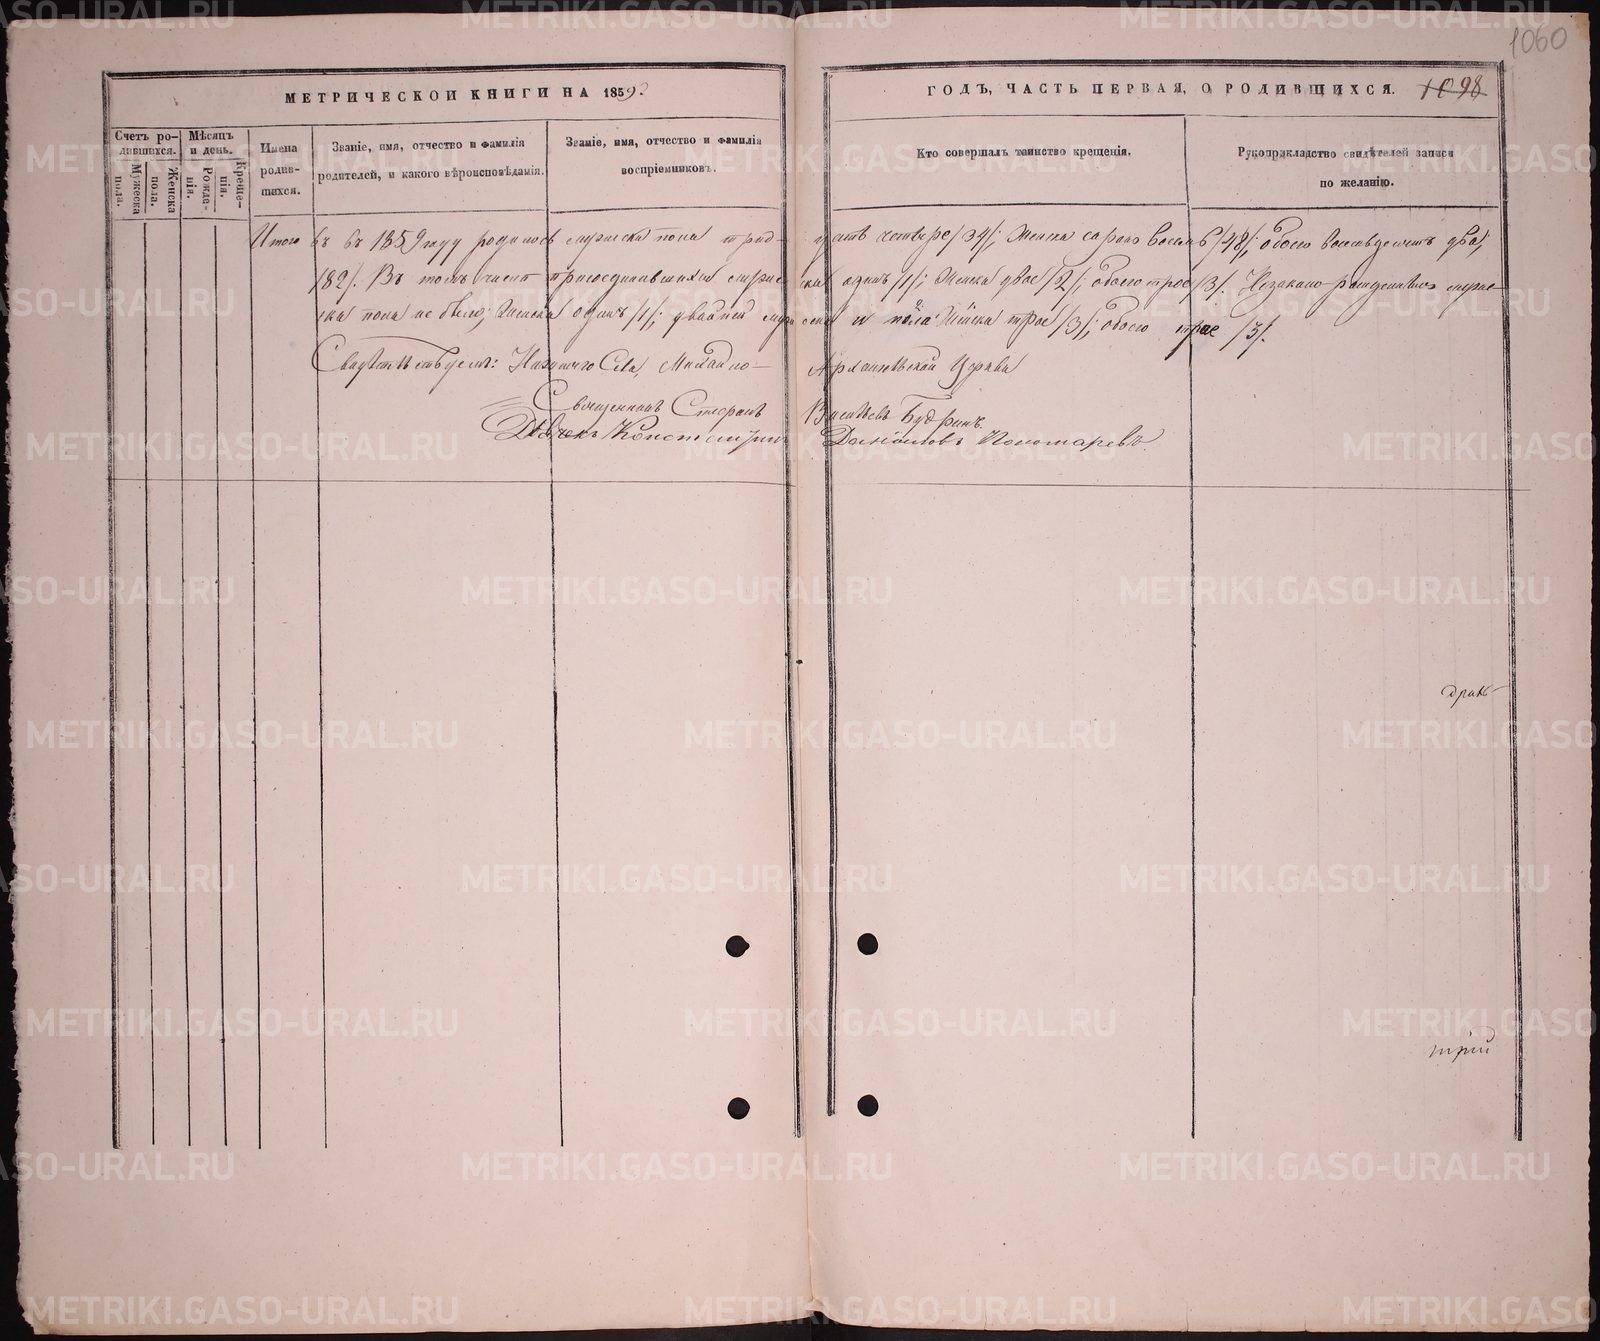 1060
МЕТРИЧЕСКОЙ КНИГИ НА 1859
ГОДЪ, ЧАСТЬ ПЕРВАЯ, О РОДИВШИХСЯ. 1098
Счетъ ро-
дившихся.
Мужеска
пола.
Женска
пола.
Мѣсяцъ
и день.
Рожде-
нія.
Креще-
нія.
Имена
родив-
шихся.
Званіе, имя, отчество и фамилія
родителей, и какого вѣроисповѣданія.
Званіе, имя, отчество и фамилія
воспріемниковъ.
Кто совершалъ таинство крещенія.
Рукоприкладство свидѣтелей записи
по желанію.
Итого въ 1859 году родилось мужеска пола трид- цать четыре /34/; женска сорокъ восемь /48/; обоего восемьдесятъ два,
/82/. Въ томъ числѣ присоединившихся мужес- ка одинъ /1/; женска двое /2/; обоего трое /3/. Незаконо-рожденныхъ муже-
ска пола не было; женска одинъ /1/; двойней муже ска и пола женска трое /3/; обоего трое /3/.
Свидѣтельствуемъ: Села, Михайло- Архангельской Церкви
Священникъ Стефанъ Васильевъ Будринъ.
Константинъ Даниловъ Пономаревъ
METRIKI.GASO-URAL.RU